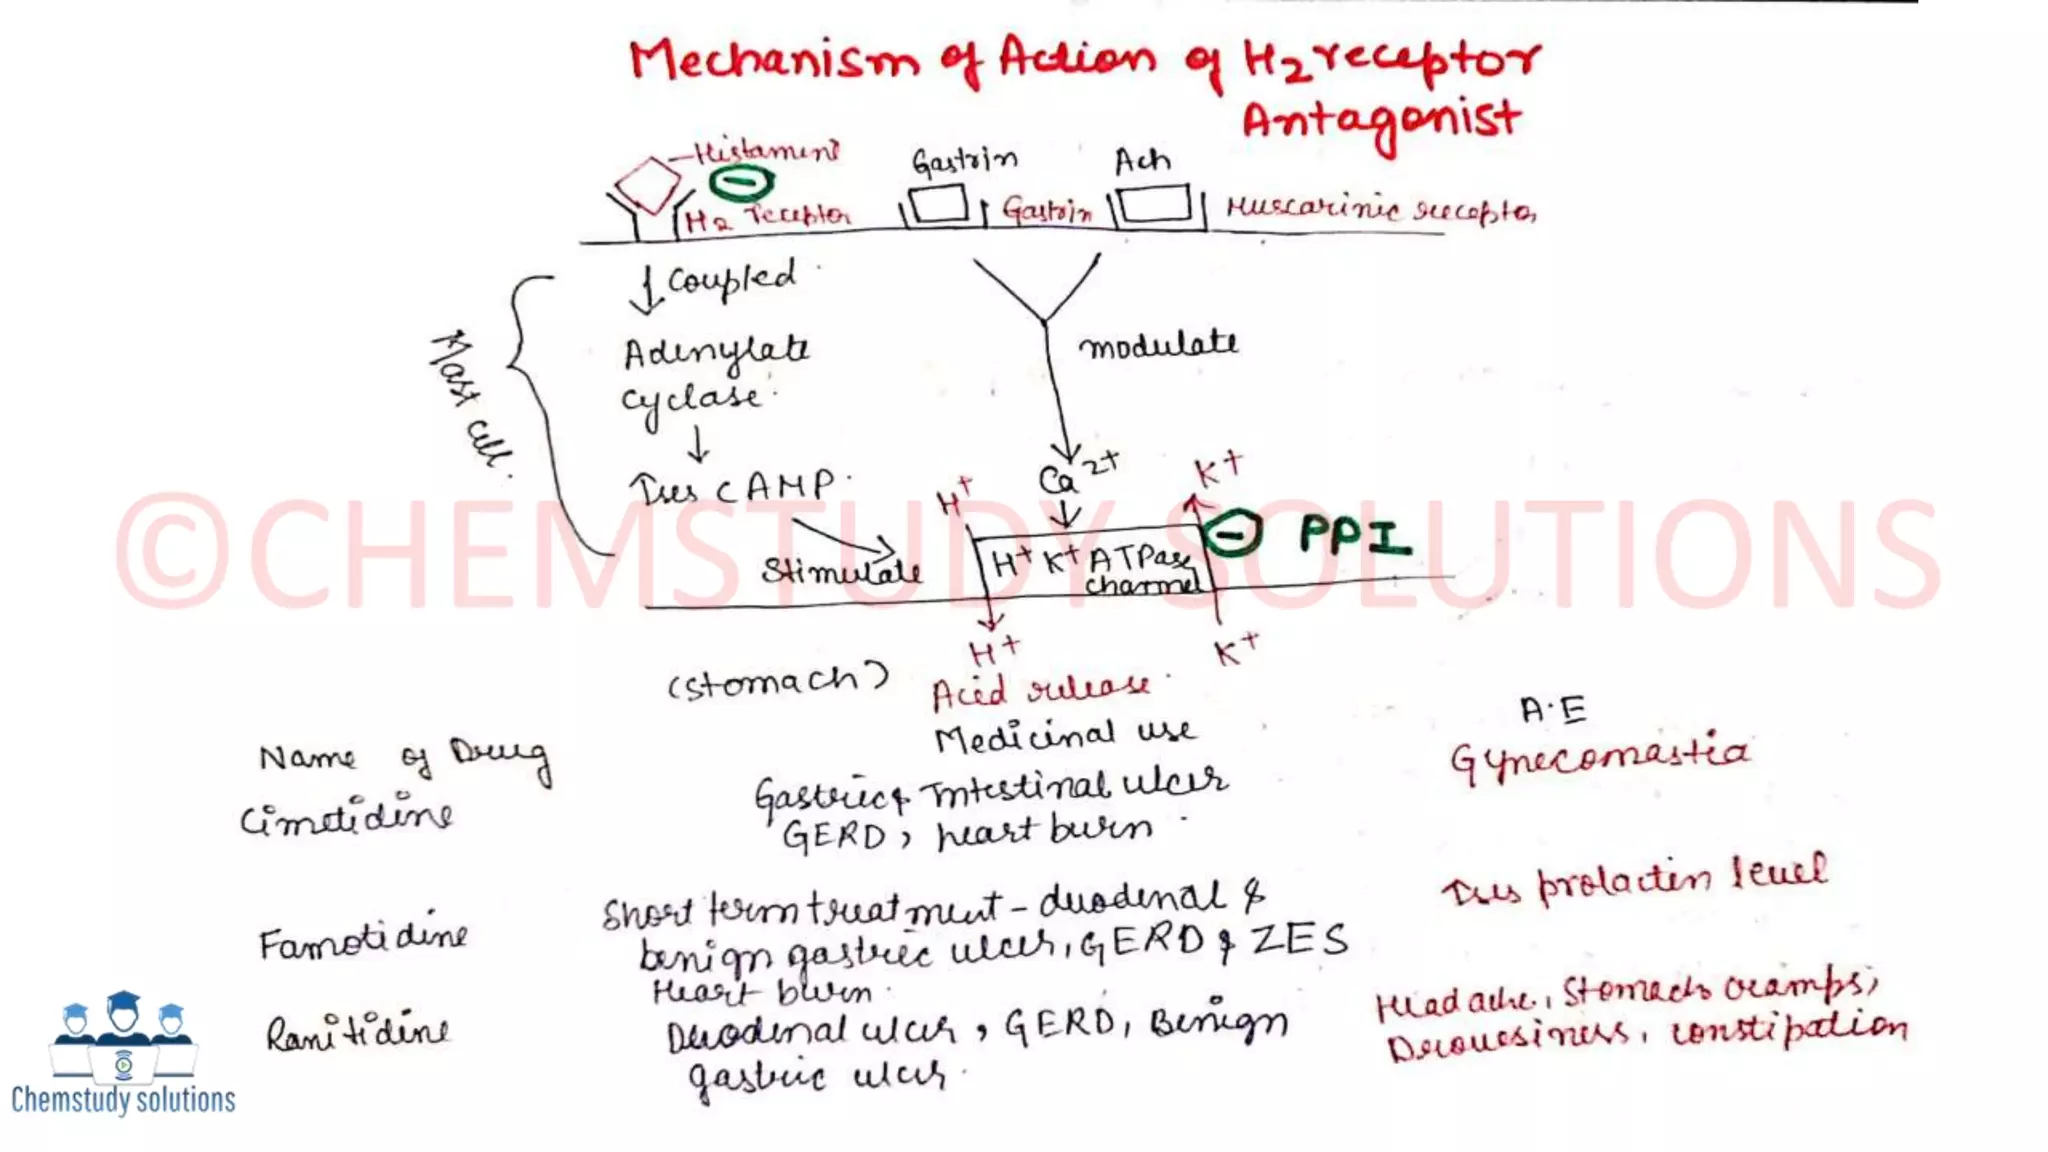 Mechanism of Action of H2 receptor
Antagonist
Histamine
Gastrin
Ach
H2 receptor
Gastrin
Muscarinic receptor
Coupled
Mast cell.
Adenylate
cyclase.
modulate
Ca2+
K+
cAMP.
H+
PPI
H+ K+ ATPase
channel
Stimulate
©CHEMSTUDY SOLUTIONS
H+
K+
(stomach)
Acid release.
A.E
Medicinal use
Name of Drug
Gynecomastia
Gastric & Intestinal ulcer
Cimetidine
GERD, heart burn.
prolactin level
Short term treatment - duodenal &
Famotidine
benign gastric ulcer, GERD & ZES
Heart burn.
Headache, Stomach cramps,
Ranitidine
Duodenal ulcer, GERD, Benign
Drowsiness, constipation
gastric ulcer.
Chemstudy solutions